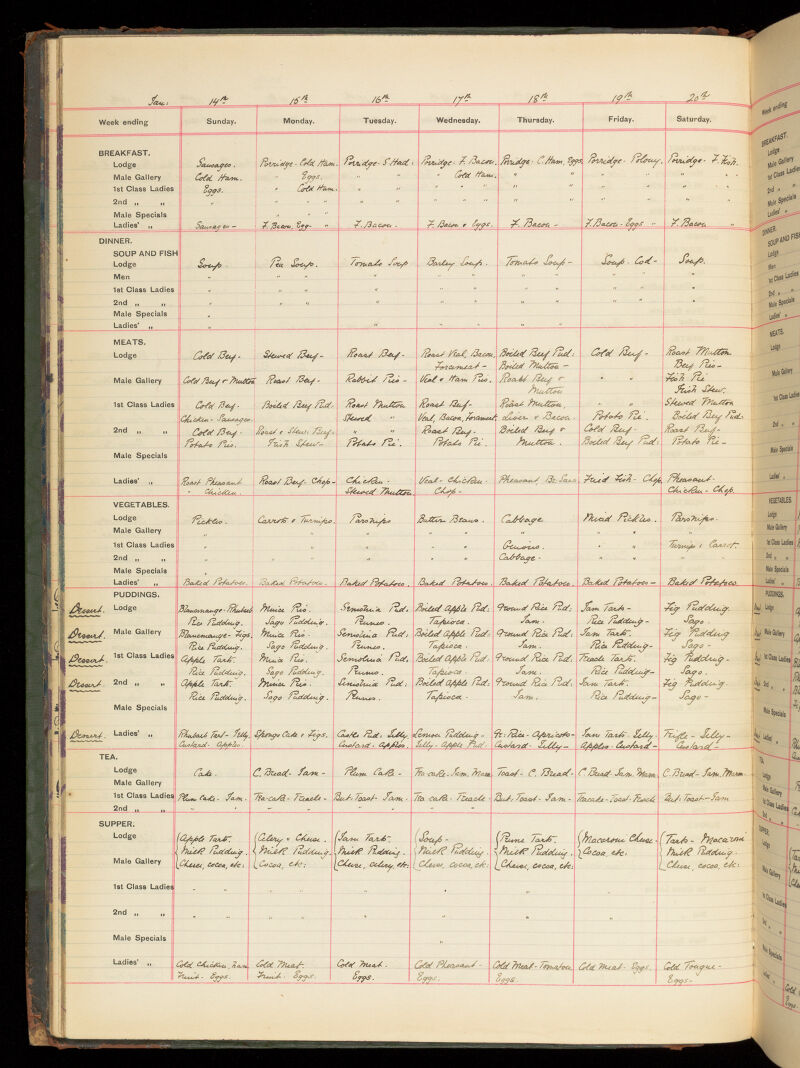 Jan: 14th 15th 16th 17th 18th 19th 20th
Week ending Sunday. Monday. Tuesday. Wednesday. Thursday. Friday. Saturday.
BREAKFAST.
Lodge Sausages. Porridge. Cold Ham. Porridge. S. Had: Porridge. F. Bacon. Porridge. C. Ham, Eggs. Porridge. Polony. Porridge. F. Fish.
Male Gallery Cold Ham. " Eggs. " " " Cold Ham. " " " " " "
1st Class Ladies Eggs. " Cold Ham. " " " " " " " " " "
2nd „ „ " " " " " " " " " " " "
Male Specials " " "
Ladies' „ Sausages - F. Bacon. Egg. " F. Bacon. F. Bacon & Eggs. F. Bacon - F. Bacon. Eggs " F. Bacon "
DINNER.
SOUP AND FISH
Lodge Soup. Pea Soup. Tomato Soup Barley Soup. Tomato Soup - Soup. Cod - Soup.
Men " " " " " " "
1st Class Ladies " " " " " " "
2nd „ „ " " " " " " "
Male Specials "
Ladies' „ " " " " "
MEATS.
Lodge Cold Beef - Stewed Beef - Roast Beef - Roast Veal, Bacon, Boiled Beef Pud: Cold Beef - Roast Mutton
Forcemeat - Boiled Mutton - Beef Pie -
Male Gallery Cold Beef & Mutton Roast Beef - Rabbit Pie - Veal & Ham Pie. Roast Beef & " " Fish Pie
Mutton Irish Stew.
1st Class Ladies Cold Beef - Boiled Beef Pud. Roast Mutton Roast Beef - Roast Mutton " " Stewed Mutton
Chicken - Sausages. Stewed " Veal, Bacon, Forcemeat. Liver & Bacon. Potato Pie. Boiled Beef Pud:
2nd „ „ Cold Beef - Roast & Stew: Beef. " " Roast Beef - Boiled Beef & Cold Beef - Roast Beef -
Potato Pie. Irish Stew - Potato Pie. Potato Pie. Mutton. Boiled Beef Pud: Potato Pie -
Male Specials
Ladies' „ Roast Pheasant Roast Beef - Chop - Chicken. Veal - Chicken. Pheasant Fried Fish - Chop. Pheasant.
" Chicken. Stewed Mutton. Chop - Chicken - Chop.
VEGETABLES.
Lodge Pickles. Carrots & Turnips. Parsnips Butter Beans. Cabbage Mixed Pickles. Parsnips.
Male Gallery " " " " " " " "
1st Class Ladies " " " " " Onions. " " Turnips & Carrot.
2nd „ „ " " " " " Cabbage - " " " "
Male Specials "
Ladies' „ Baked Potatoes. Baked Potatoes. Baked Potatoes. Baked Potatoes. Baked Potatoes. Baked Potatoes - Baked Potatoes
PUDDINGS.
Desert. Lodge Blancmange. Rhubarb Mince Pie. Semolina Pud. Boiled Apple Pud. Ground Rice Pud. Jam Tarts - Fig Pudding
Rice Pudding. Sago Pudding. Prunes. Tapioca. Jam. Rice Pudding - Sago.
Desert. Male Gallery Blancmange - Figs. Mince Pie. Semolina Pud. Boiled Apple Pud: Ground Rice Pud: Jam Tarts. Fig Pudding
Rice Pudding. Sago Pudding. Prunes. Tapioca. Jam. Rice Pudding - Sago -
Desert. 1st Class Ladies Apple Tart. Mince Pie. Semolina Pud. Boiled Apple Pud. Ground Rice Pud: Treacle Tarts. Fig Pudding -
Rice Pudding. Sago Pudding. Prunes. Tapioca. Jam. Rice Pudding - Sago.
Desert 2nd „ „ Apple Tart. Mince Pie. Semolina Pud. Boiled Apple Pud. Ground Rice Pud. Jam Tarts. Fig Pudding.
Rice Pudding. Sago Pudding. Prunes. Tapioca. Jam. Rice Pudding - Sago -
Male Specials
Desert. Ladies' „ Rhubarb Tart - Jelly. Sponge Cake & Figs. Castle Pud: Jelly Lemon Pudding - G: Rice - Apricots - Jam Tarts. Jelly. Trifle - Jelly -
Custard. Apples. Custard. Apples. Jelly - Apple Pud. Custard. Jelly - Apples. Custard - Custard -
TEA.
Lodge Cake. C. Bread - Jam - Plum Cake - Tea cake. Jam. Marm Toast - C. Bread - C. Bread. Jam. Marm. C. Bread - Jam. Marm
Male Gallery
1st Class Ladies Plum Cake - Jam. Tea-cake - Treacle - But: Toast - Jam. Tea cake. Treacle But. Toast - Jam - Teacake - Toast - Treacle But: Toast - Jam
2nd „ „ " " " " " " " " " "
SUPPER.
Lodge Apple Tart. Celery & Cheese. Jam Tart. Soup. Prune Tart. Macaroni Cheese. Tarts - Macaroni
Milk Pudding. Milk Pudding. Milk Pudding. Milk Pudding. Milk Pudding. Cocoa, etc: Milk Pudding.
Male Gallery Cheese, cocoa, etc: Cocoa, etc: Cheese, celery, etc: Cheese, cocoa, etc: Cheese, cocoa, etc: Cheese, cocoa, etc:
1st Class Ladies " " " " " "
2nd „ „ " " " " " " "
Male Specials
Ladies' „ Cold Chicken, Ham Cold Meat. Cold Meat. Cold Pheasant - Cold Meat - Tomatoes Cold Meat - Eggs. Cold Tongue -
Fruit - Eggs. Fruit. Eggs. Eggs. Eggs. Eggs Eggs -